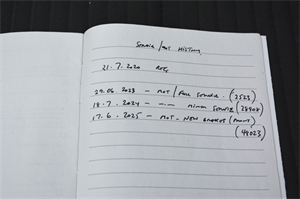 Service / MOT HISTORY
21.7.2020 REG
29.06.2023 - MOT / Full Service. (2523)
18.7.2024 - -"- Minor Service (28904)
17.6.2025 - MOT - NEW BRAKES (FRONT)
(48023)